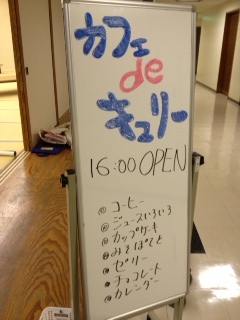 カフェ
de
キュリー
16:00 OPEN
◎コーヒー
◎ジュースいろいろ
◎カップケーキ
◎みそぽてと
◎ゼリー
◎チョコレート
◎カレンダー